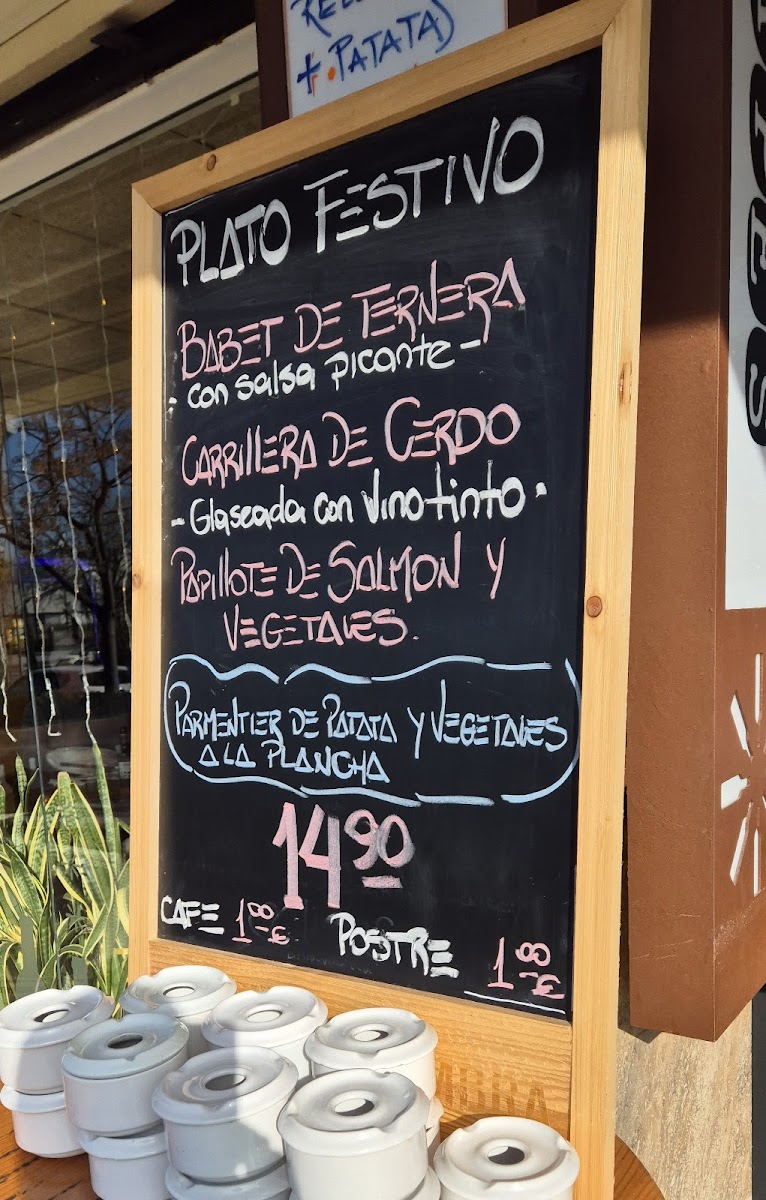 + PATATA)
PLATO FESTIVO
BABET DE TERNERA
- con salsa picante -
CARRILLERA DE CERDO
- Glaseada con vino tinto -
PAPILLOTE DE SALMON Y
VEGETALES.
PARMENTIER DE PATATA Y VEGETALES
A LA PLANCHA
14,90
CAFE 1,80 €
POSTRE 1,80 €